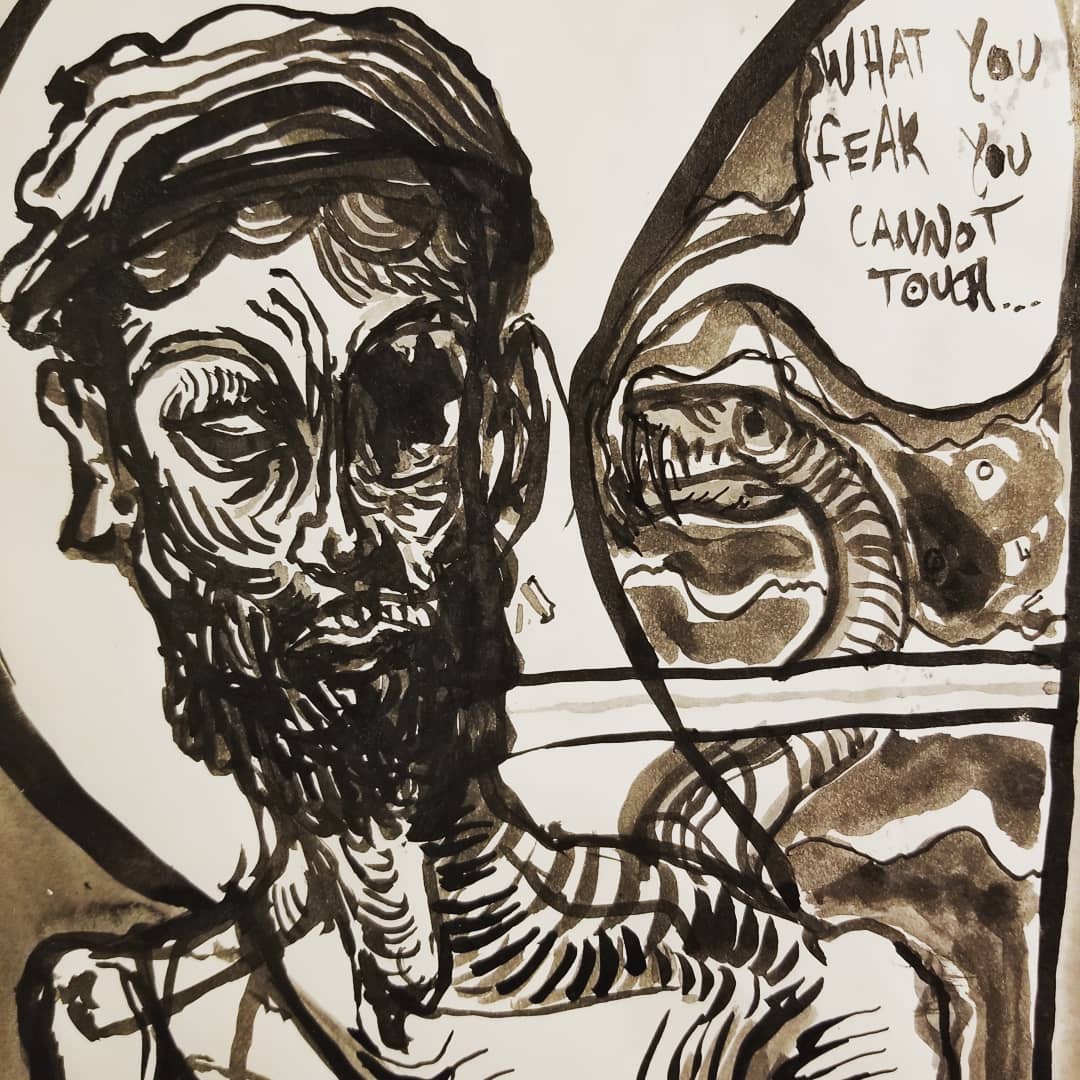 WHAT YOU
FEAR YOU
CANNOT
TOUCH...